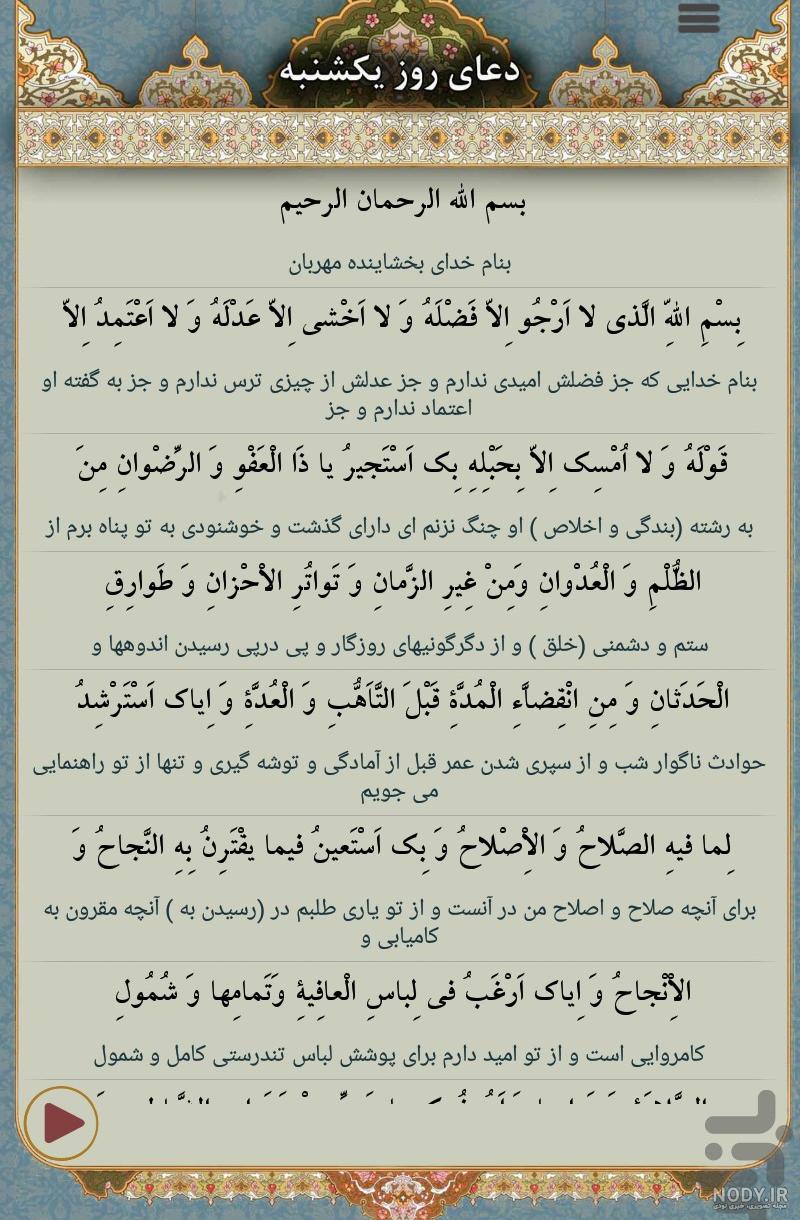 دعای روز یکشنبه
بسم الله الرحمان الرحیم
بنام خدای بخشاینده مهربان
بِسْمِ اللهِّ الَّذی لا اَرْجُو اِلاّ فَضْلَهُ وَ لا اَخْشی اِلاّ عَدْلَهُ وَ لا اَعْتَمِدُ اِلاّ
بنام خدایی که جز فضلش امیدی ندارم و جز عدلش از چیزی ترس ندارم و جز به گفته او
اعتماد ندارم و جز
قَوْلَهُ وَ لا اُمْسِک اِلاّ بِحَبْلِهِ بِک اَسْتَجیرُ یا ذَا الْعَفْوِ وَ الرِّضْوانِ مِنَ
به رشته (بندگی و اخلاص ) او چنگ نزنم ای دارای گذشت و خوشنودی به تو پناه برم از
الظُّلْمِ وَ الْعُدْوانِ وَمِنْ غِیرِ الزَّمانِ وَ تَواتُرِ الاْحْزانِ وَ طَوارِقِ
ستم و دشمنی (خلق ) و از دگرگونیهای روزگار و پی درپی رسیدن اندوهها و
الْحَدَثانِ وَ مِنِ انْقِضاَّءِ الْمُدَّةِ قَبْلَ التَّاَهُّبِ وَ الْعُدَّةِ وَ اِیاک اَسْتَرْشِدُ
حوادث ناگوار شب و از سپری شدن عمر قبل از آمادگی و توشه گیری و تنها از تو راهنمایی
می جویم
لِما فیهِ الصَّلاحُ وَ الاْصْلاحُ وَ بِک اَسْتَعینُ فیما یقْتَرِنُ بِهِ النَّجاحُ وَ
برای آنچه صلاح و اصلاح من در آنست و از تو یاری طلبم در (رسیدن به ) آنچه مقرون به
کامیابی و
الاْنْجاحُ وَ اِیاک اَرْغَبُ فی لِباسِ الْعافِیةِ وَتَمامِها وَ شُمُولِ
کامروایی است و از تو امید دارم برای پوشش لباس تندرستی کامل و شمول
NODY.IR
مجله تصویری، خبری نودی